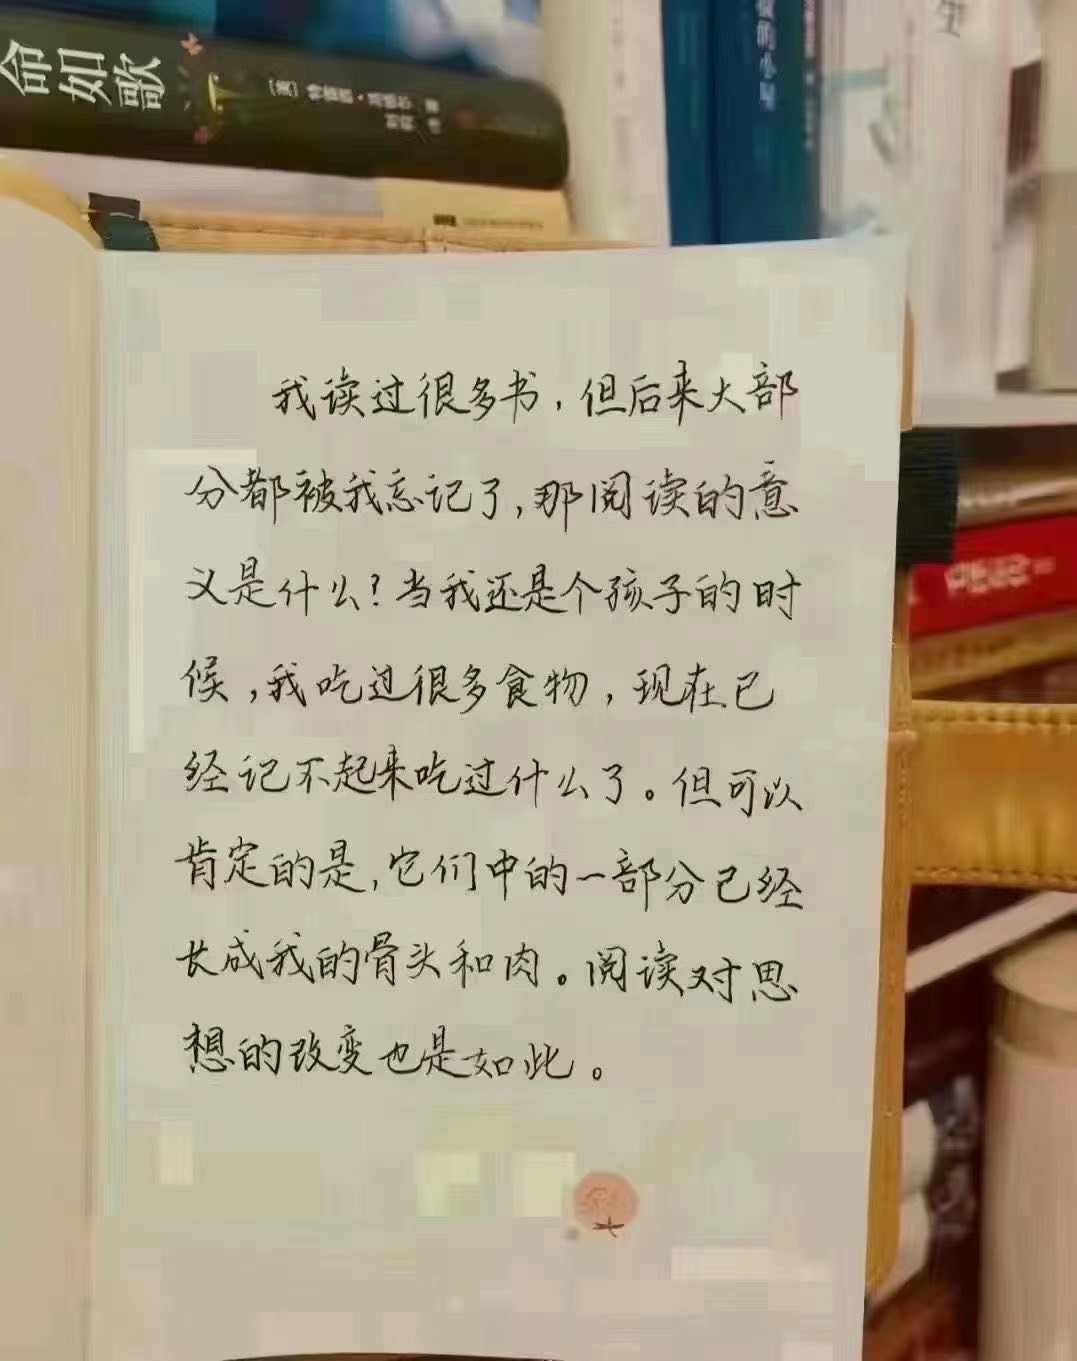 命如歌
的小屋
生
我读过很多书，但后来大部
分都被我忘记了，那阅读的意
义是什么？当我还是个孩子的时
候，我吃过很多食物，现在已
经记不起来吃过什么了。但可以
肯定的是，它们中的一部分已经
长成我的骨头和肉。阅读对思
想的改变也是如此。